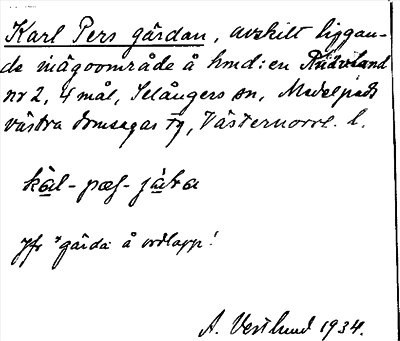 Karl Pers gärdan, avskilt liggan-
de inägoområde å hmd: en
nr 2, 4 mål, Selångers sn, Medelpads
västra domsagas tg, Västernorrl. l.
kàl-pæṣ-
jfr "gärda å ordlapp!
A. Vestlund 1934.